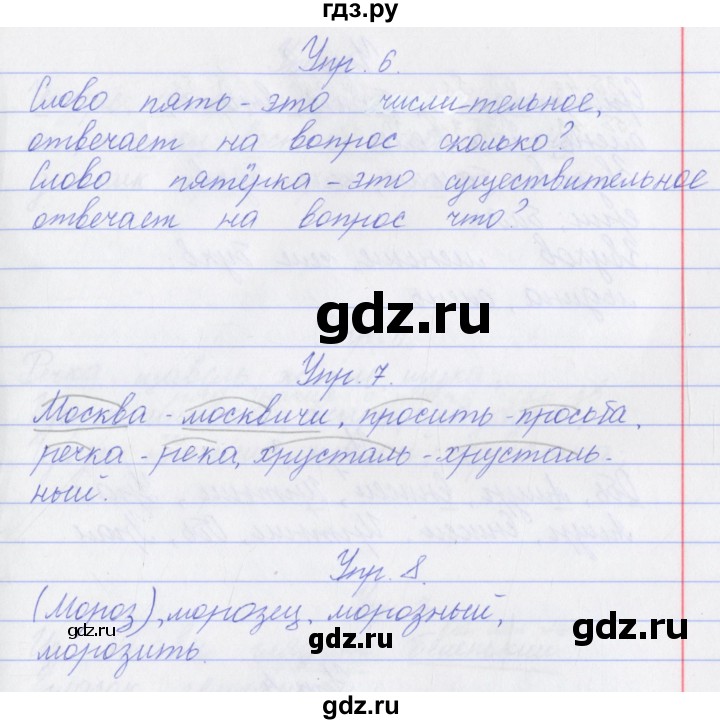 гдз.ру
Упр. 6.
Слово пять - это числительное,
отвечает на вопрос сколько?
Слово пятёрка - это существительное
отвечает на вопрос что?
gdz.ru
Упр. 7.
Москва - москвичи, просить - просьба,
речка - река, хрусталь - хрусталь-
ный.
Упр. 8.
(Мороз), морозец, морозный,
gdz.ru
gdz.ru
морозить.
gdz.ru